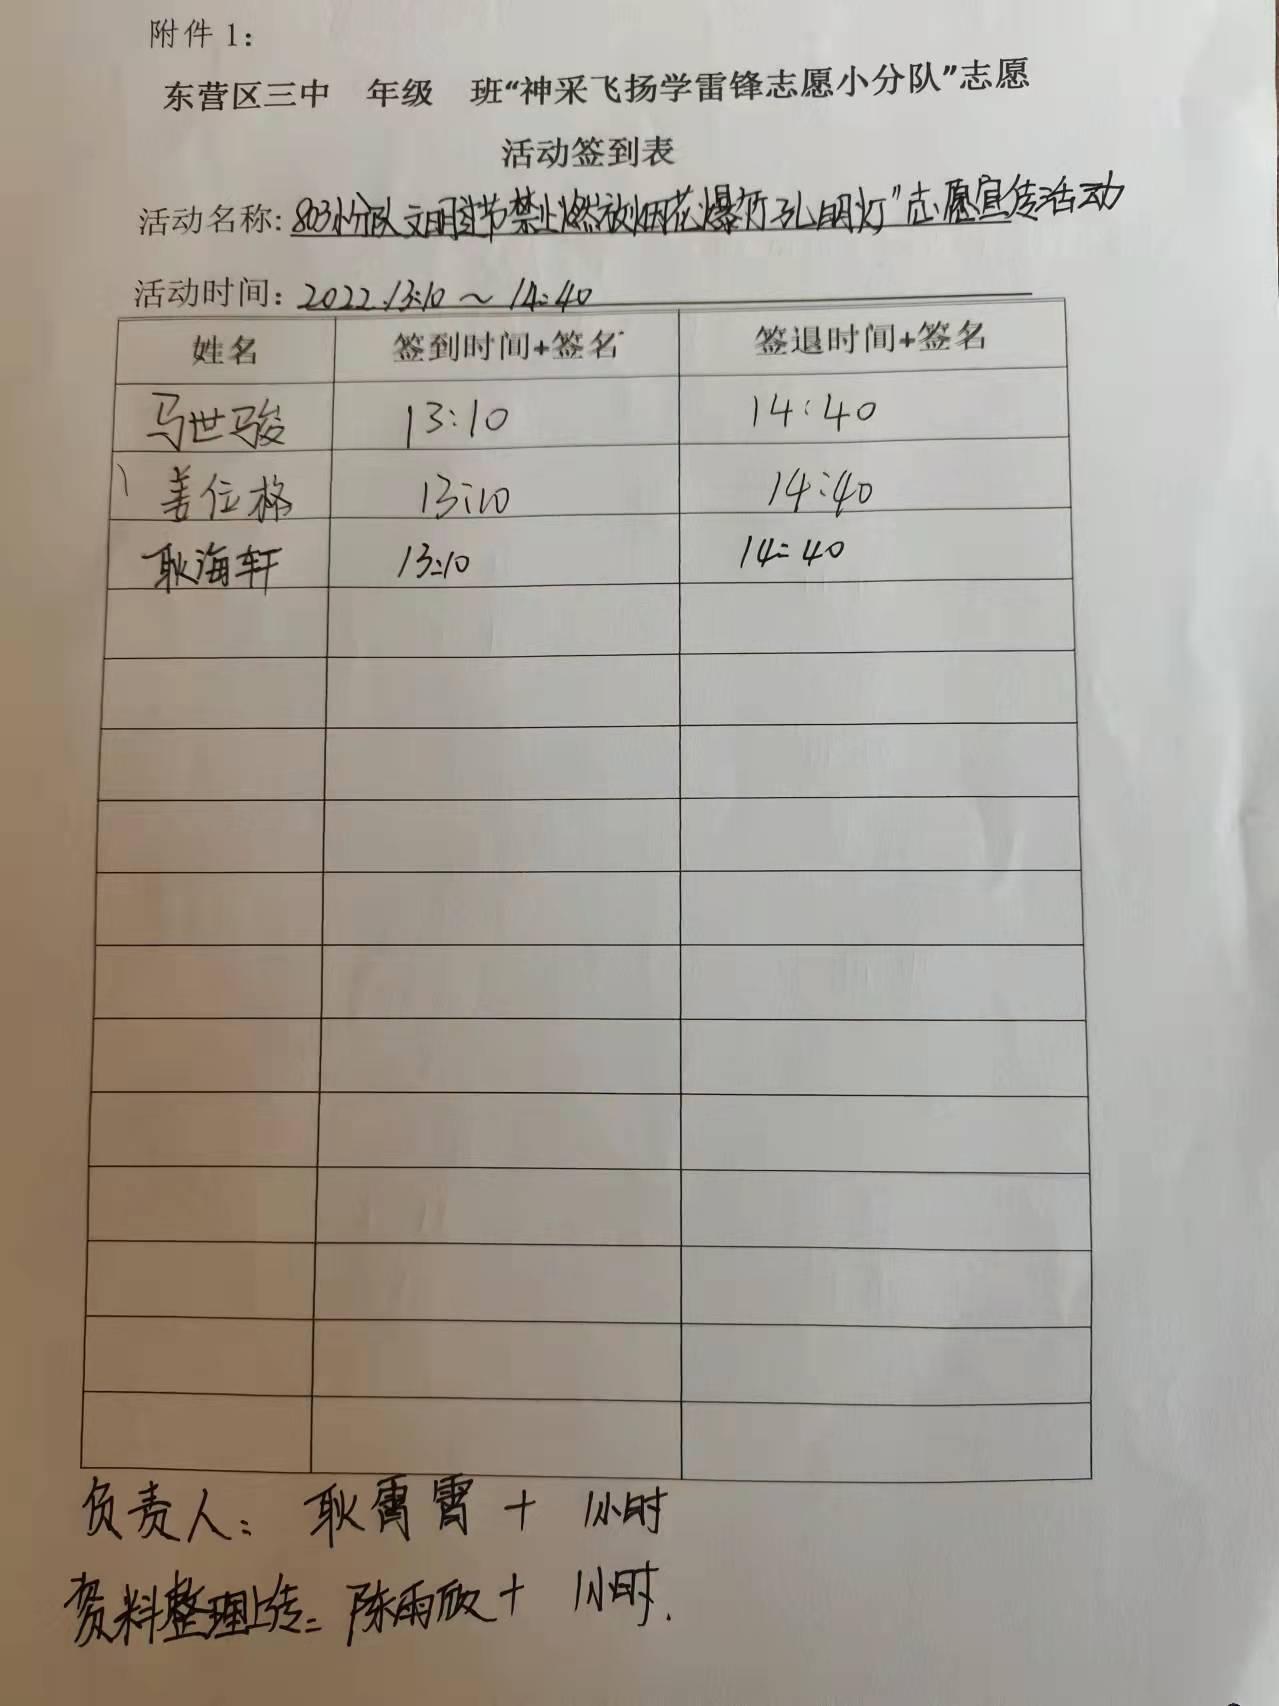 附件 1：
东营区三中 年级 班“神采飞扬学雷锋志愿小分队”志愿
活动签到表
活动名称: 803小分队文明过节禁止燃放烟花爆竹孔明灯”志愿宣传活动
活动时间: 2022.13:10～14:40
姓名 签到时间+签名 签退时间+签名
马世骏 13:10 14:40
盖位格 13:10 14:40
耿海轩 13:10 14:40
负责人: 耿霄霄+ 1小时
资料整理上传: 陈雨欣+ 1小时.